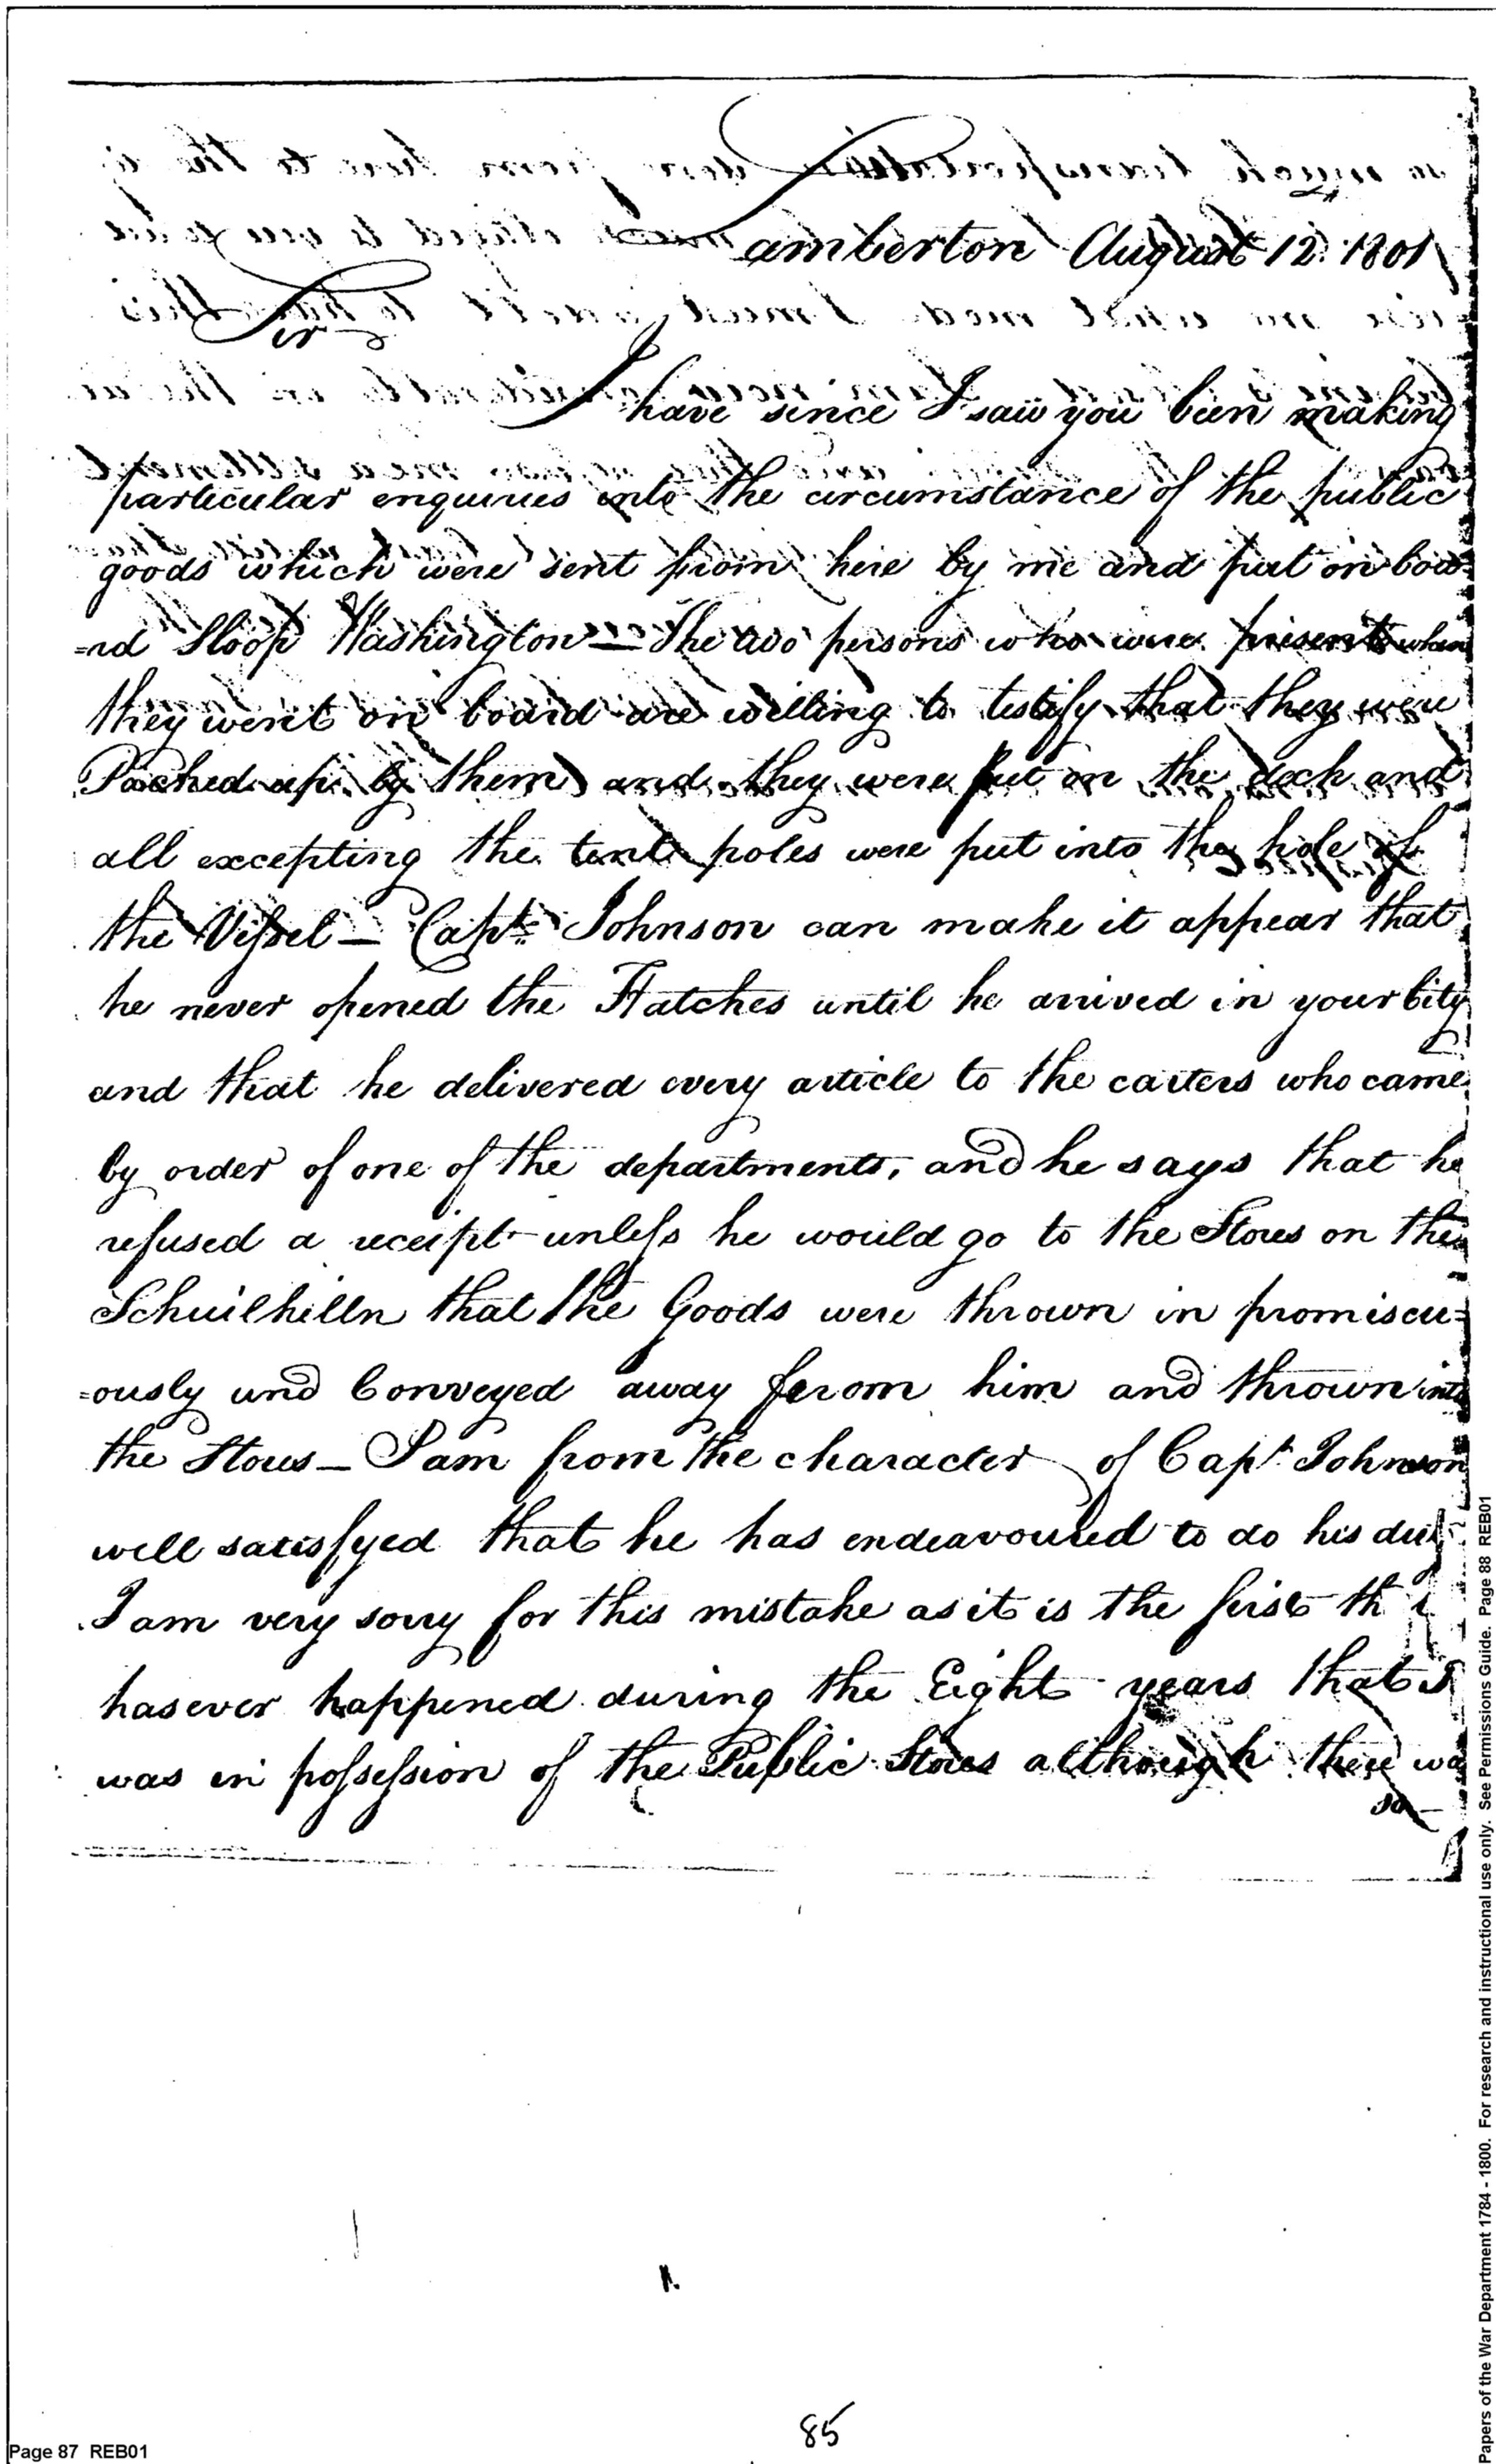 Lamberton August 12. 1801
Sir
I have since I saw you been making
particular enquiries into the circumstance of the public
goods which were sent from here by me and put on boa
=rd Sloop Washington — The two persons who were present when
they went on board are willing to testify that they were
Packed up by them and they were put on the deck and
all excepting the tent poles were put into the hole of
the Vessel — Capt. Johnson can make it appear that
he never opened the Hatches until he arrived in your City
and that he delivered every article to the carters who came
by order of one of the departments, and he says that he
refused a receipt unless he would go to the Stores on the
Schuilhilln that the Goods were thrown in promiscu=
=ously and Conveyed away ferom him and thrown into
the Stores — I am from the character of Capt. Johnson
well satisfyed that he has endeavoured to do his
I am very sorry for this mistake as it is the first
has ever happened during the Eight years that I
was in possession of the Public Stores although there wa
so
85
Page 87 REB01
Papers of the War Department 1784 - 1800. For research and instructional use only. See Permissions Guide. Page 88 REB01